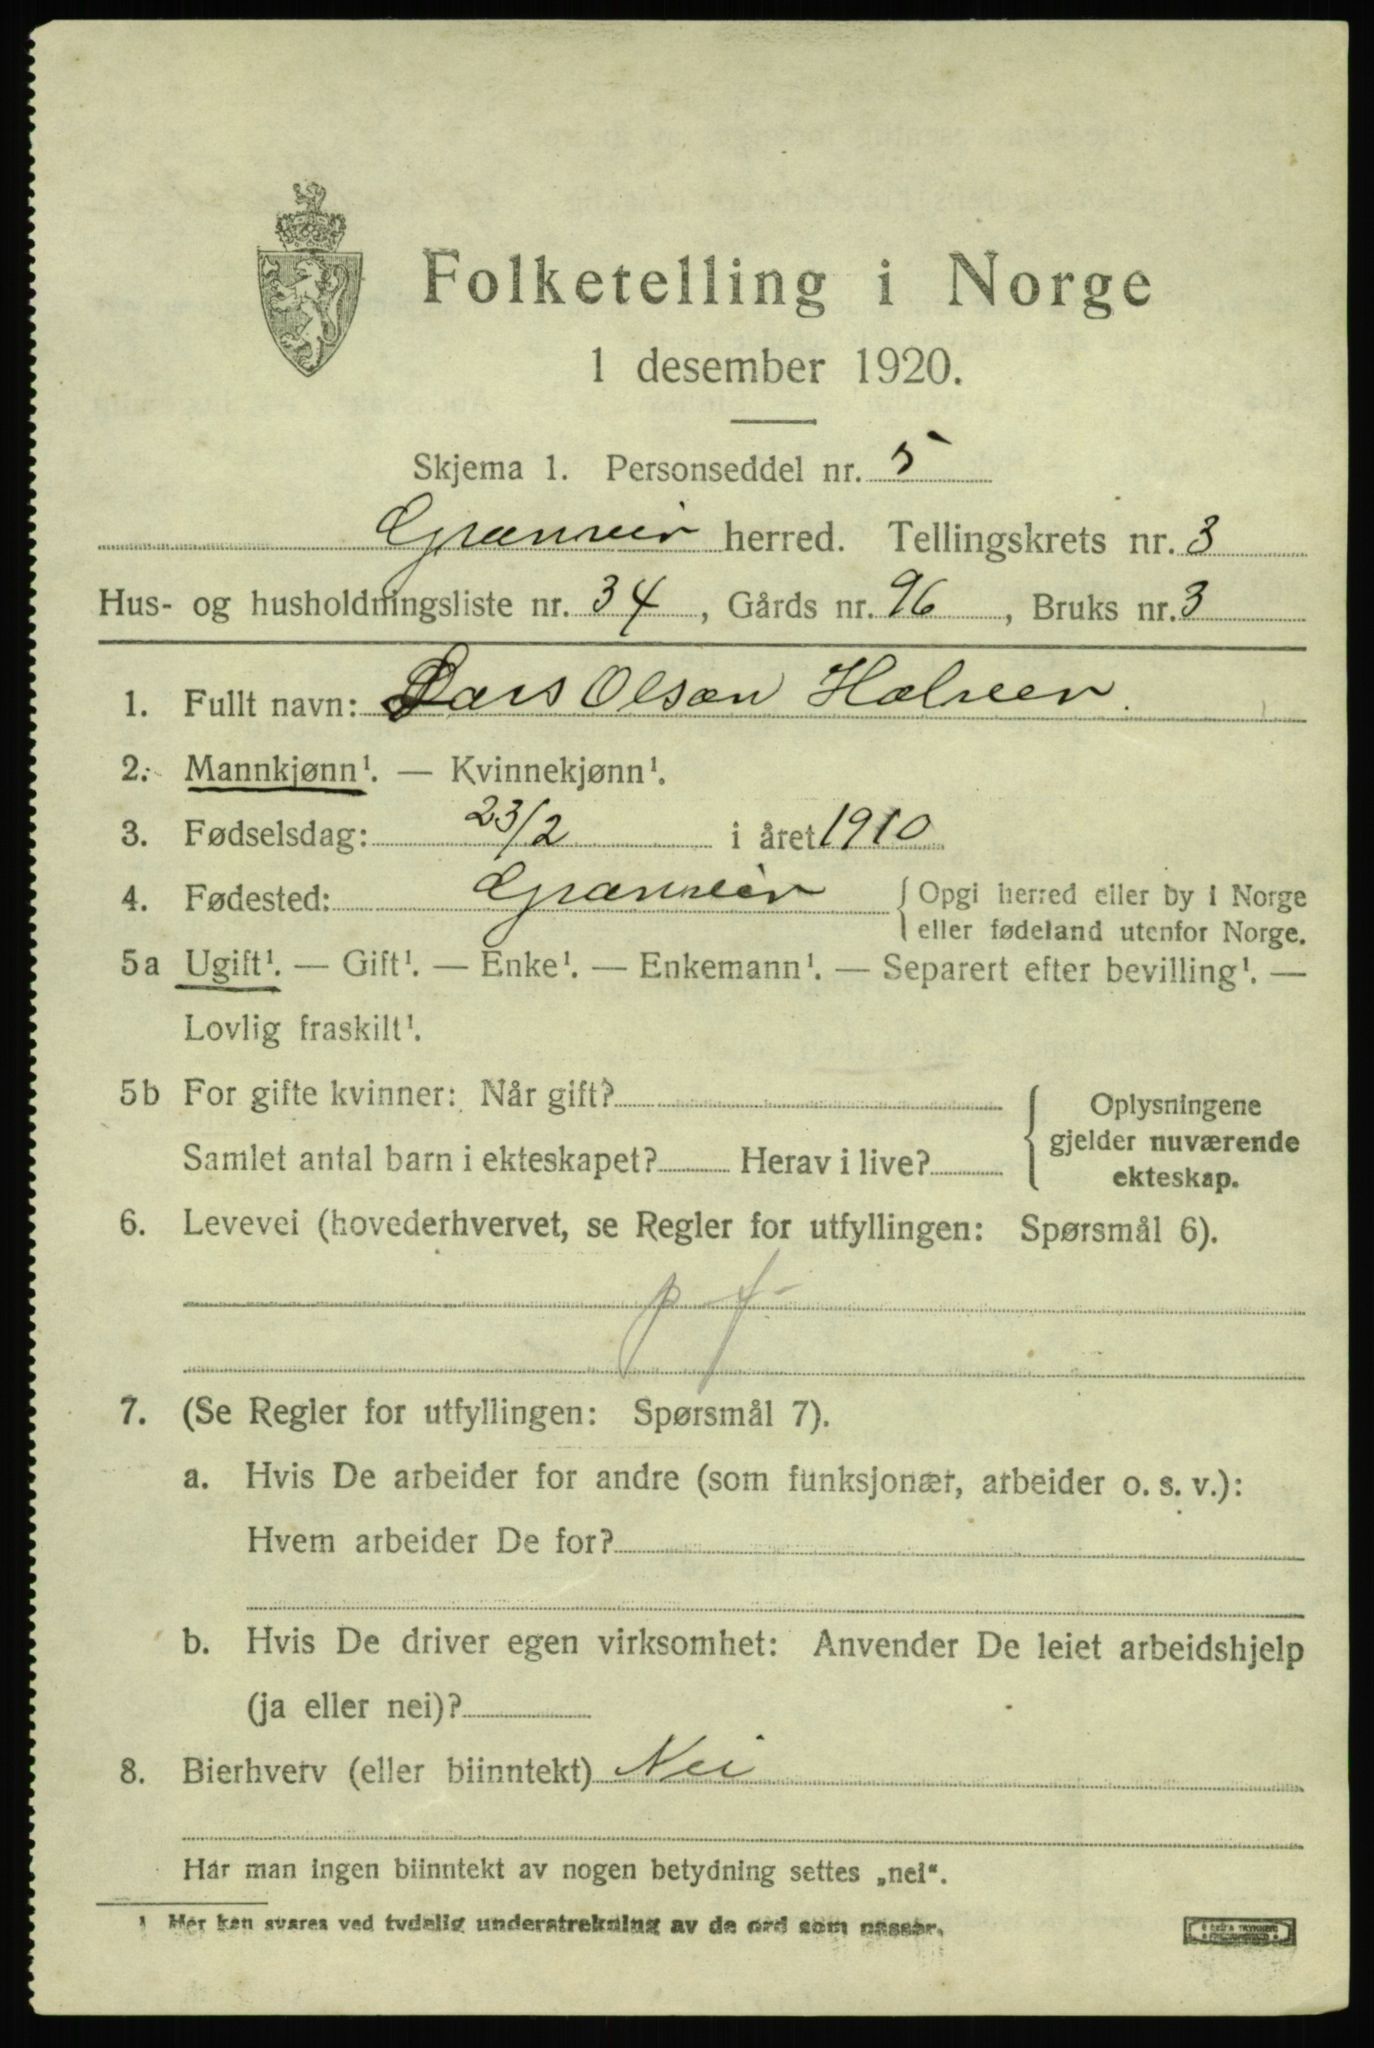 Folketelling i Norge
1 desember 1920.
Skjema 1. Personseddel nr. 5
Granvin herred. Tellingskrets nr. 3
Hus- og husholdningsliste nr. 34, Gårds nr. 96, Bruks nr. 3
1. Fullt navn: Lars Olsen
2. Mannkjønn¹. — Kvinnekjønn¹.
3. Fødselsdag: 23/2 i året 1910
4. Fødested: Granvin { Opgi herred eller by i Norge
eller fødeland utenfor Norge.
5a Ugift¹. — Gift¹. — Enke¹. — Enkemann¹. — Separert efter bevilling¹. —
Lovlig fraskilt¹.
5b For gifte kvinner: Når gift?
Samlet antal barn i ekteskapet? Herav i live?
{ Oplysningene
gjelder nuværende
ekteskap.
6. Levevei (hovederhvervet, se Regler for utfyllingen: Spørsmål 6).
p f
7. (Se Regler for utfyllingen: Spørsmål 7).
a. Hvis De arbeider for andre (som funksjonær, arbeider o. s. v.):
Hvem arbeider De for?
b. Hvis De driver egen virksomhet: Anvender De leiet arbeidshjelp
(ja eller nei)?
8. Bierhverv (eller biinntekt) Nei
Har man ingen biinntekt av nogen betydning settes „nei“.
¹ Her kan svares ved tydelig understrekning av de ord som passer.